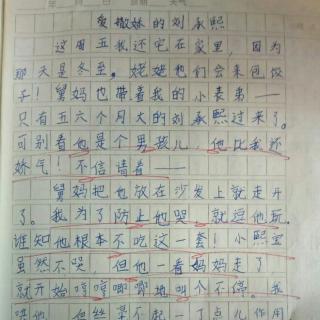 年 月 日 星期 天气
爱撒娇的刘承熙
这周五我还宅在家里，因为
那天是冬至。姥姥他们会来包饺
子！舅妈也带着我的小表弟——
只有五六个月大的刘承熙过来了。
可别看他是个男孩儿，他比我还
娇气！不信请看——
舅妈把他放在沙发上就走开
了。我为了防止他哭，就逗他玩。
谁知他根本不吃这一套！小熙宝
虽然不哭，但他一看妈妈走了
就开始哼哼唧唧地叫个不停。我
他，但丝毫不起一了点儿作用